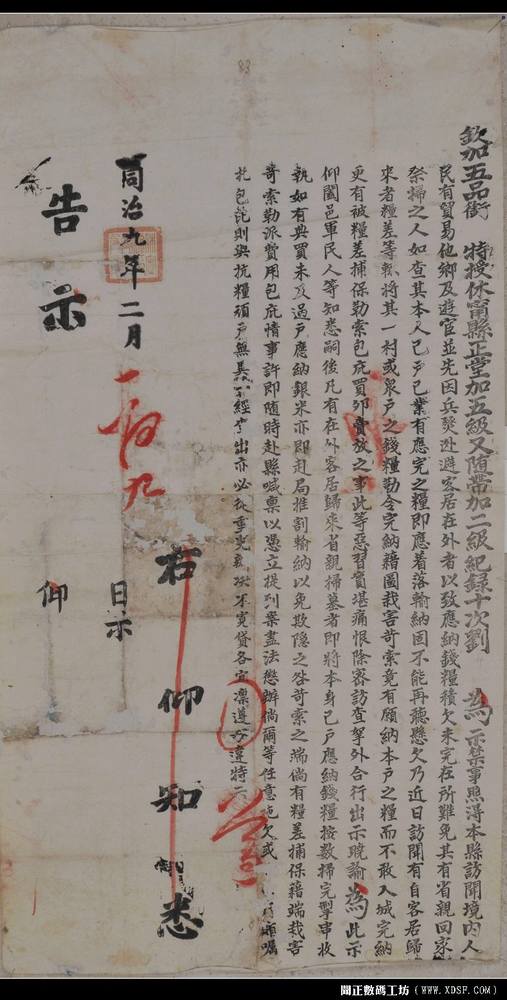 83
欽加五品銜 特授休甯縣正堂加五級又随帶加二級紀録十次劉 為
示禁事照得本縣訪聞境内人
民有貿易他鄉及遊宦並先因兵燹逃避客居在外者以致應納錢糧積欠未完在所難免其有省親回家
祭掃之人如查其本人己戶己業有應完之糧即應着落輸納固不能再聽懸欠乃近日訪聞有自客居歸
來者糧差等輒將其一村或衆戶之錢糧勒令完納藉圖栽害苛索竟有願納本戶之糧而不敢入城完納
更有被糧差捕保勒索包庇買卯賣放之事此等惡習實堪痛恨除密訪查拏外合行出示曉諭為此示
仰闔邑軍民人等知悉嗣後凡有在外客居歸來省親掃墓者即將本身己戶應納錢糧按數掃完掣串收
執如有典買未及過戶應納銀米亦即赴局推割輸納以免欺隱之咎苛索之端倘有糧差捕保藉端栽害
苛索勒派費用包庇情事許即随時赴縣喊稟以憑立提到案盡法懲辦倘爾等任意拖欠或
托包庇則與抗糧頑戶無異 經 出亦必 不寬貸各宜凛遵勿違特示
右仰知悉
同治九年二月 日示
告示 仰
聞正數碼工坊（www.XDSF.com）